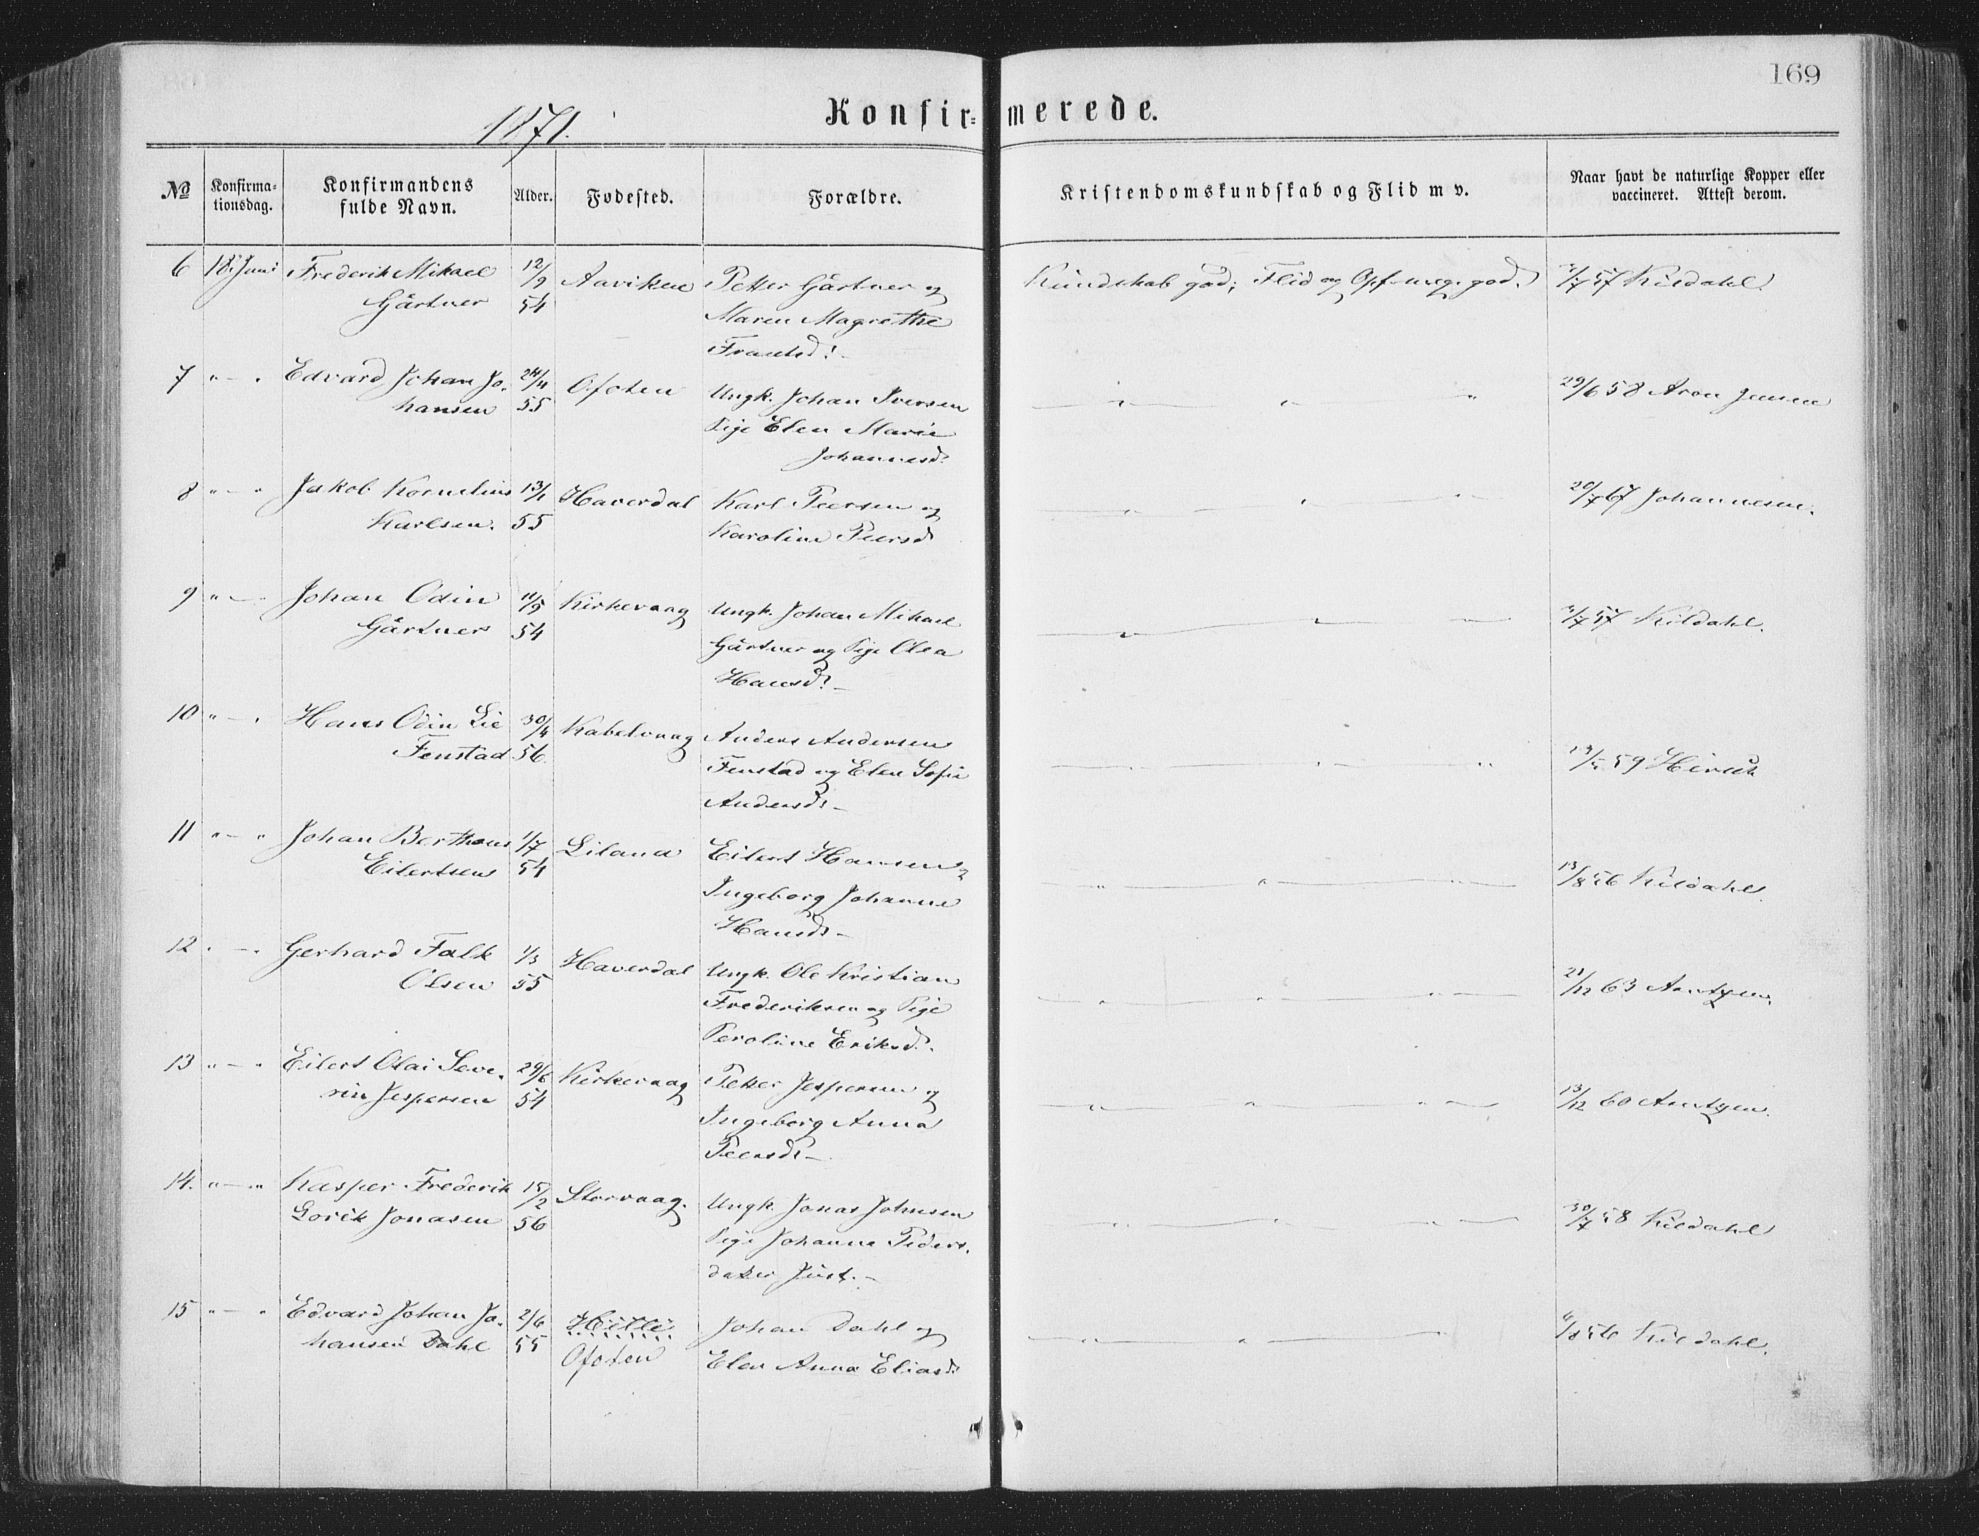 169
1871.
Konfir=merede.
No
Konfirma=
tionsdag.
Konfirmandens
fulde Navn.
Alder.
Fødested.
Forældre.
Kristendomskundskab og Flid m v.
Naar havt de naturlige Kopper eller
vaccineret. Attest derom.
6 18. Juni Frederik Mikael 12/9 Aaviken Petter Gärtner og Kundskab god; Flid og Opf. meg. god. 3/7 57 Kildahl.
Gärtner 54 Maren Magrethe
Frantsd:
7 " - " Edvard Johan Jo- 24/11 Ofoten Ungk. Johan Iversen 29/6 58 Aron Jensen
hansen 55 Pige Elen Marie
Johannesd:
8 " - " Jakob Kornelius 13/1 Haverdal Karl Peersen og 20/7 67 Johannesen.
Karlsen. 55 Karoline Peersd
9 " - " Johan Odin 10/9 Kirkevaag Ungk. Johan Mikael 3/7 57 Kildahl.
Gärtner 54 Gärtner og Pige Olea
Hansd:
10 " - " Hans Odin Lie 30/4 Kabelvaag Anders Andersen 59 Hirsch
Fenstad 56 Fenstad og Elen Sofie
Andersd:
11 " - " Johan Bertheus 1/7 Liland Eilert Hansen 13/8 56 Kildahl
Eilertsen 54 Ingeborg Johanne
Hansd:
12 " - " Gerhard Falk 1/3 Haverdal Ungk. Ole Kristian 21/12 63 Arntzen.
Olsen 55 Frederiksen og Pige
Peroline Eriksd:
13 " - " Eilert Olai Seve- 29/6 Kirkevaag Petter Jespersen og 13/12 60 Arntzen.
rin Jespersen 54 Ingeborg Anna
Peersd:
14. " - " Kasper Frederik 15/2 Storvaag. Ungk. Jonas Johnsen 30/7 58 Kildahl
Jonasen 56 Pige Johanna Peders-
datter Just.
15 " - " Edvard Johan Jo- 2/6 Johan Dahl og 56 Kildahl.
hansen Dahl 55 Ofoten Elen Anna Eliasd: